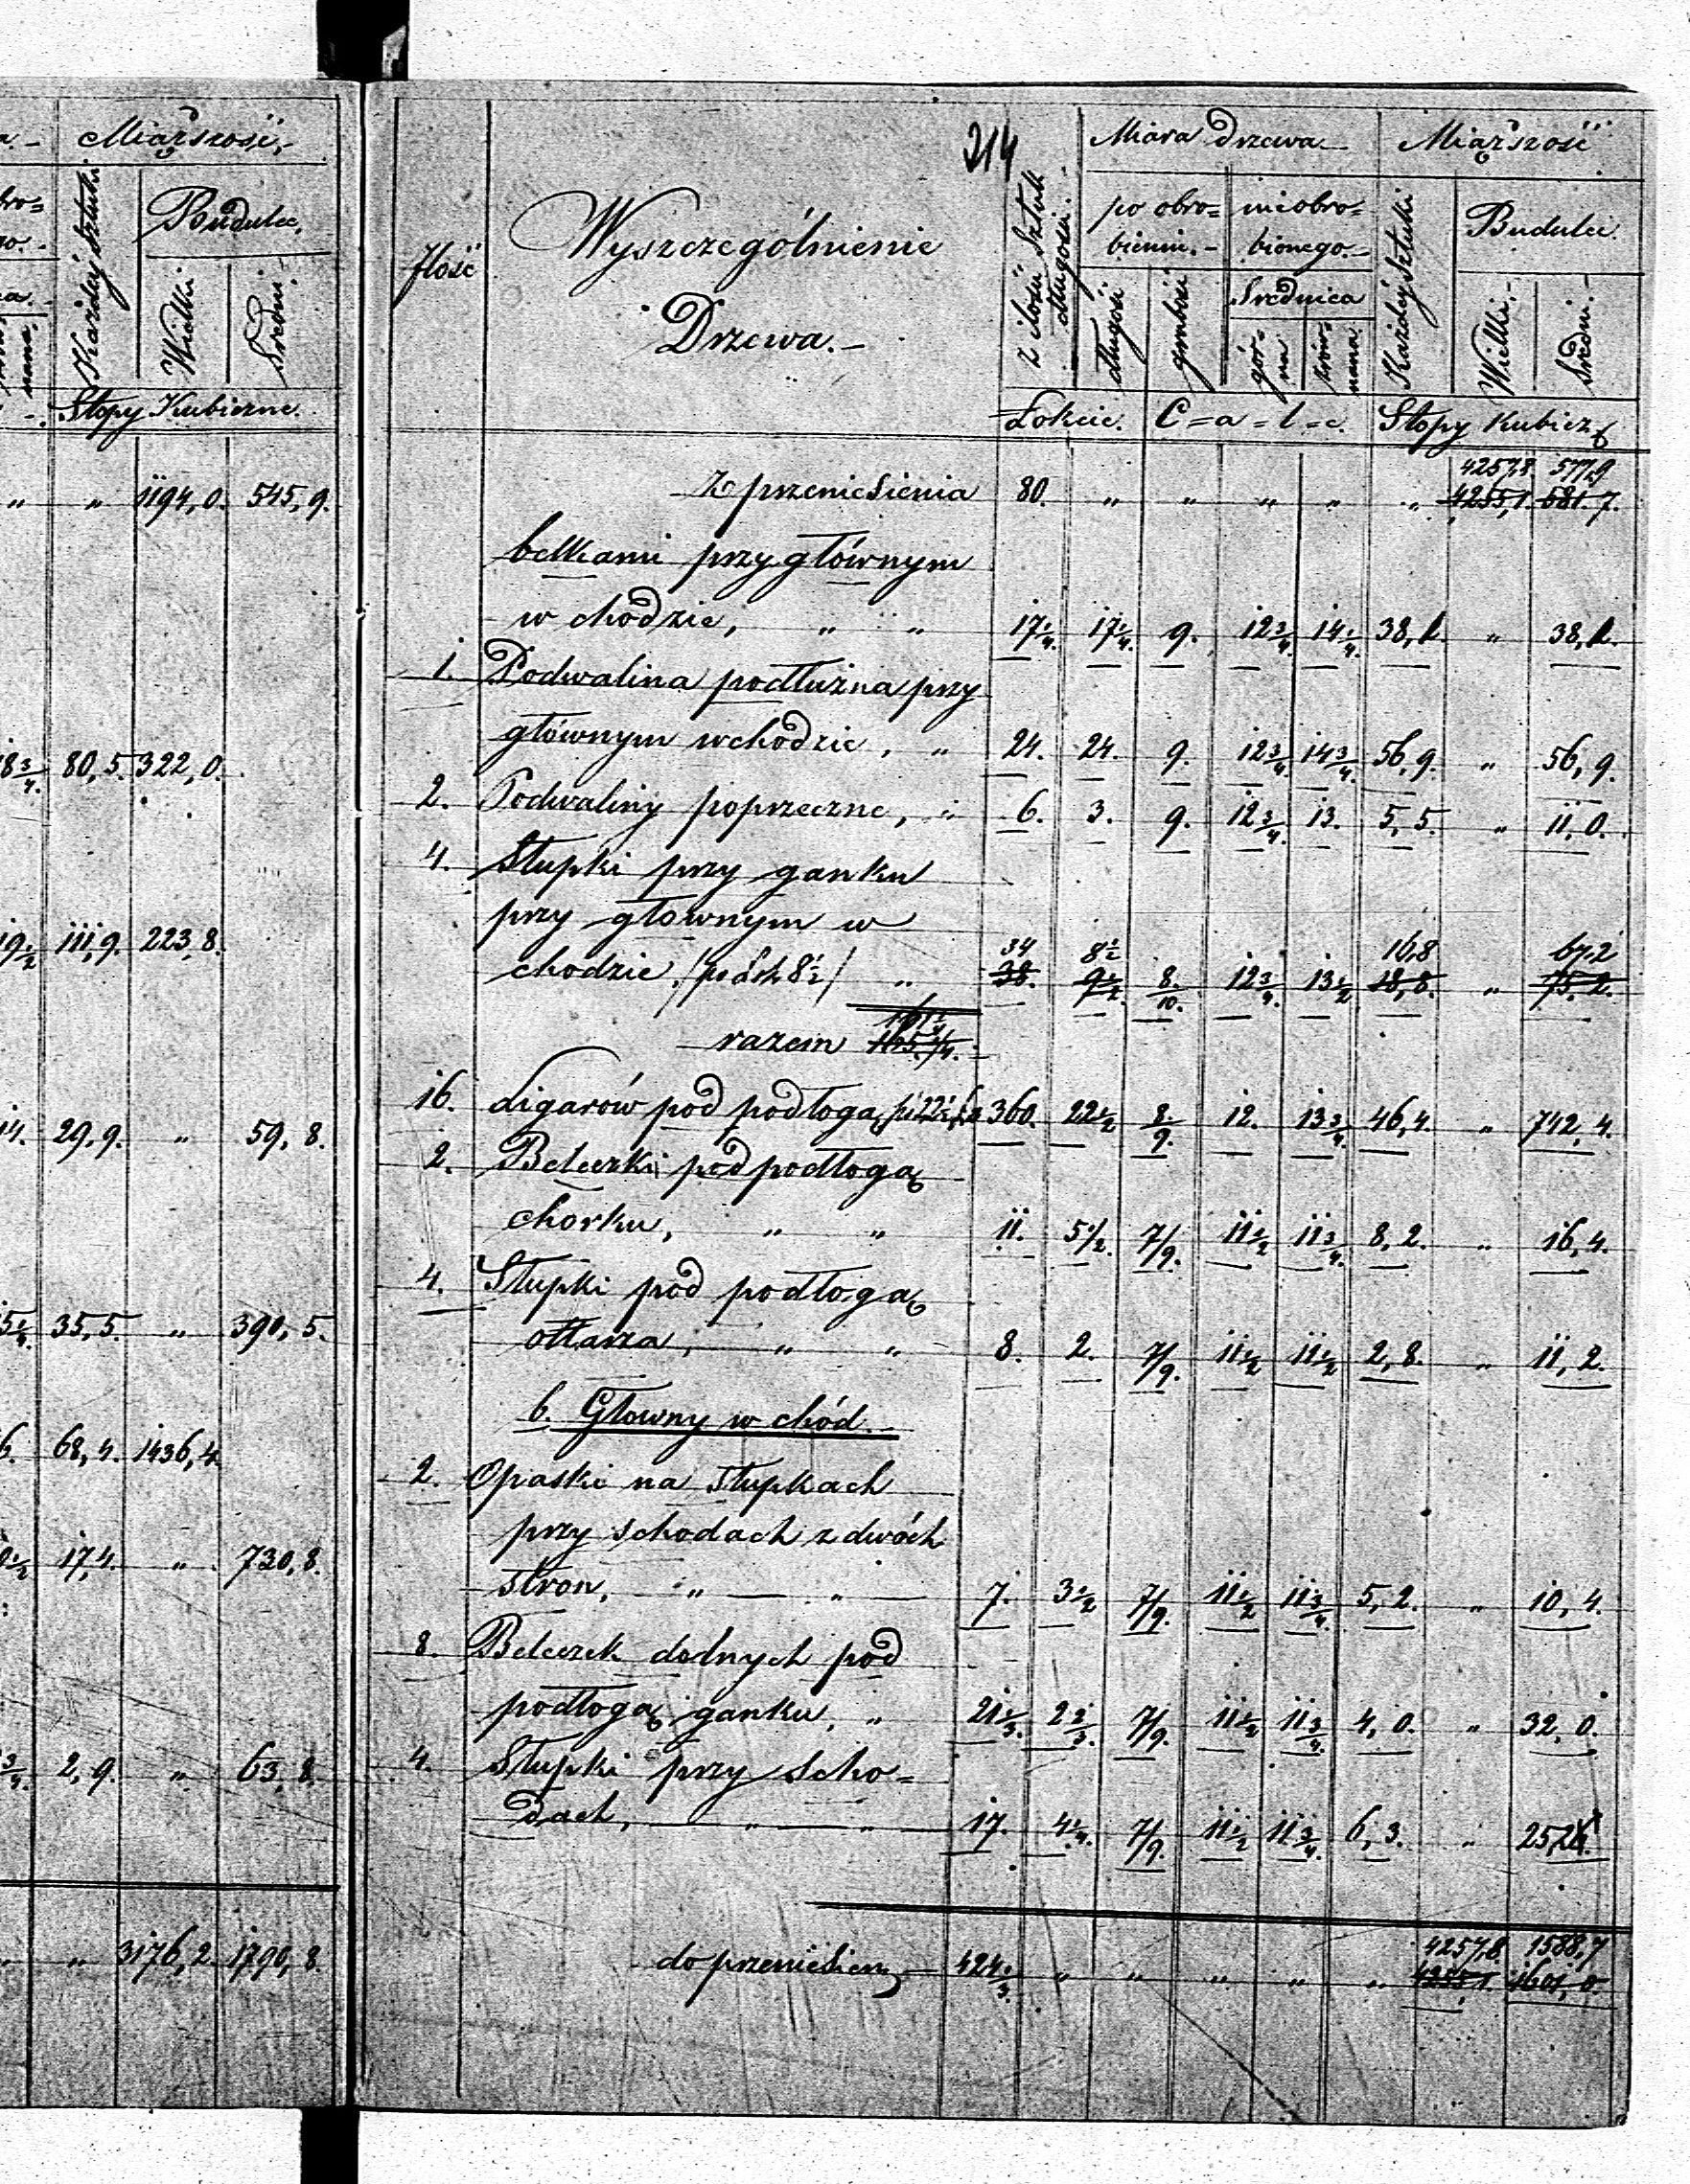 Miąższość,
Każdéj Sztuki
Budulec,
Wielki
Średni
Stopy Kubiczne.
" " 1194,0. 545,9.
18 3/4. 80,5. 322,0.
19 1/2 111,9. 223,8.
14. 29,9. " 59,8.
35,5. " 390,5.
6. 68,4. 1436,4
17,4. " 730,8.
3/4. 2,9. " 63,8.
" " 3176,2. 1790,8.
214
Ilość
Wyszczególnienie
Drzewa.
z ilości Sztuk długości
Miara Drzewa
Miąższość
po obro=
bieniu.
nieobro=
bionego.
długość
grubość
Średnica
gór=
na
Każdéj Sztuki
Budulec
Wielki
Średni
Łokcie. C=a=l=e. Stopy Kubicz
4257,8 577,9
Z przeniesienia 80. " " " " " 4255,1. 581.7.
belkami przy głównym
w chodzie, " " 17 1/4. 17 1/4. 9. 12 3/4. 14 1/4. 38,1. " 38,1.
1. Podwalina podłużna przy
głównym wchodzie, " 24. 24. 9. 12 3/4. 14 3/4. 56,9. " 56,9.
2. Podwaliny poprzeczne, " 6. 3. 9. 12 3/4. 13. 5,5. " 11,0.
4. Słupki przy ganku
przy głownym w
34 8 1/2 16,8 67,2
chodzie, /po łok 8 1/2/ " 38. 9 1/2. 8/10. 12 3/4. 13 1/2 18,8. " 75.2.
razem 165 1/4.
16. Ligarów pod podłogą, po 22 1/2 360. 22 1/2 8/9. 12. 13 3/4. 46,4. " 742,4.
2. Beleczki pod podłogą
chorku, " " 11. 5 1/2. 7/9. 11 1/2 11 3/4. 8,2. " 16,4.
4. Słupki pod podłogą
ołtarza, " " 8. 2. 7/9. 11 1/2 11 1/2 2,8. " 11,2.
6. Głowny w chód.
2. Opaski na słupkach
przy schodach z dwóch
stron, " " 7. 3 1/2 7/9. 11 1/2 11 3/4. 5,2. " 10,4.
8. Beleczek dolnych pod
podłogą ganku, " 21 1/3. 2 2/3. 7/9. 11 1/2 11 3/4. 4,0. " 32,0.
4. Słupki przy scho=
dach, " " 17. 4 1/4. 7/9. 11 1/2 11 3/4. 6,3. " 25,2
4257,8 1588,7
do przeniesieni 424 1/3. " " " " " 4255,1. 1601,0.